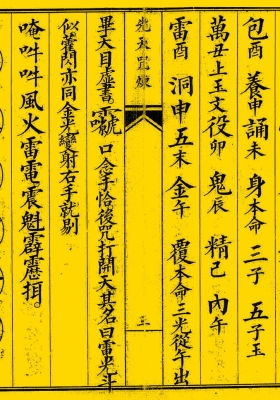 包酉 養申 誦未 身本命 三子 五子玉
萬丑上玉文役卯 鬼辰 精己 內午
雷酉 洞申五未 金午 覆本命三光從午出
先天雷
畢大目虛書 口念手恰後咒打開天其名曰雷光斗
似霍閃亦同金光變射右手就剔
唵吽吽風火雷電震魁霹靂揖